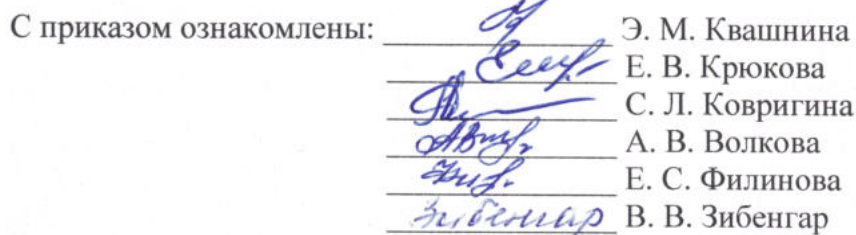 С приказом ознакомлены: Э. М. Квашнина
Е. В. Крюкова
С. Л. Ковригина
А. В. Волкова
Е. С. Филинова
Зибенгар В. В. Зибенгар